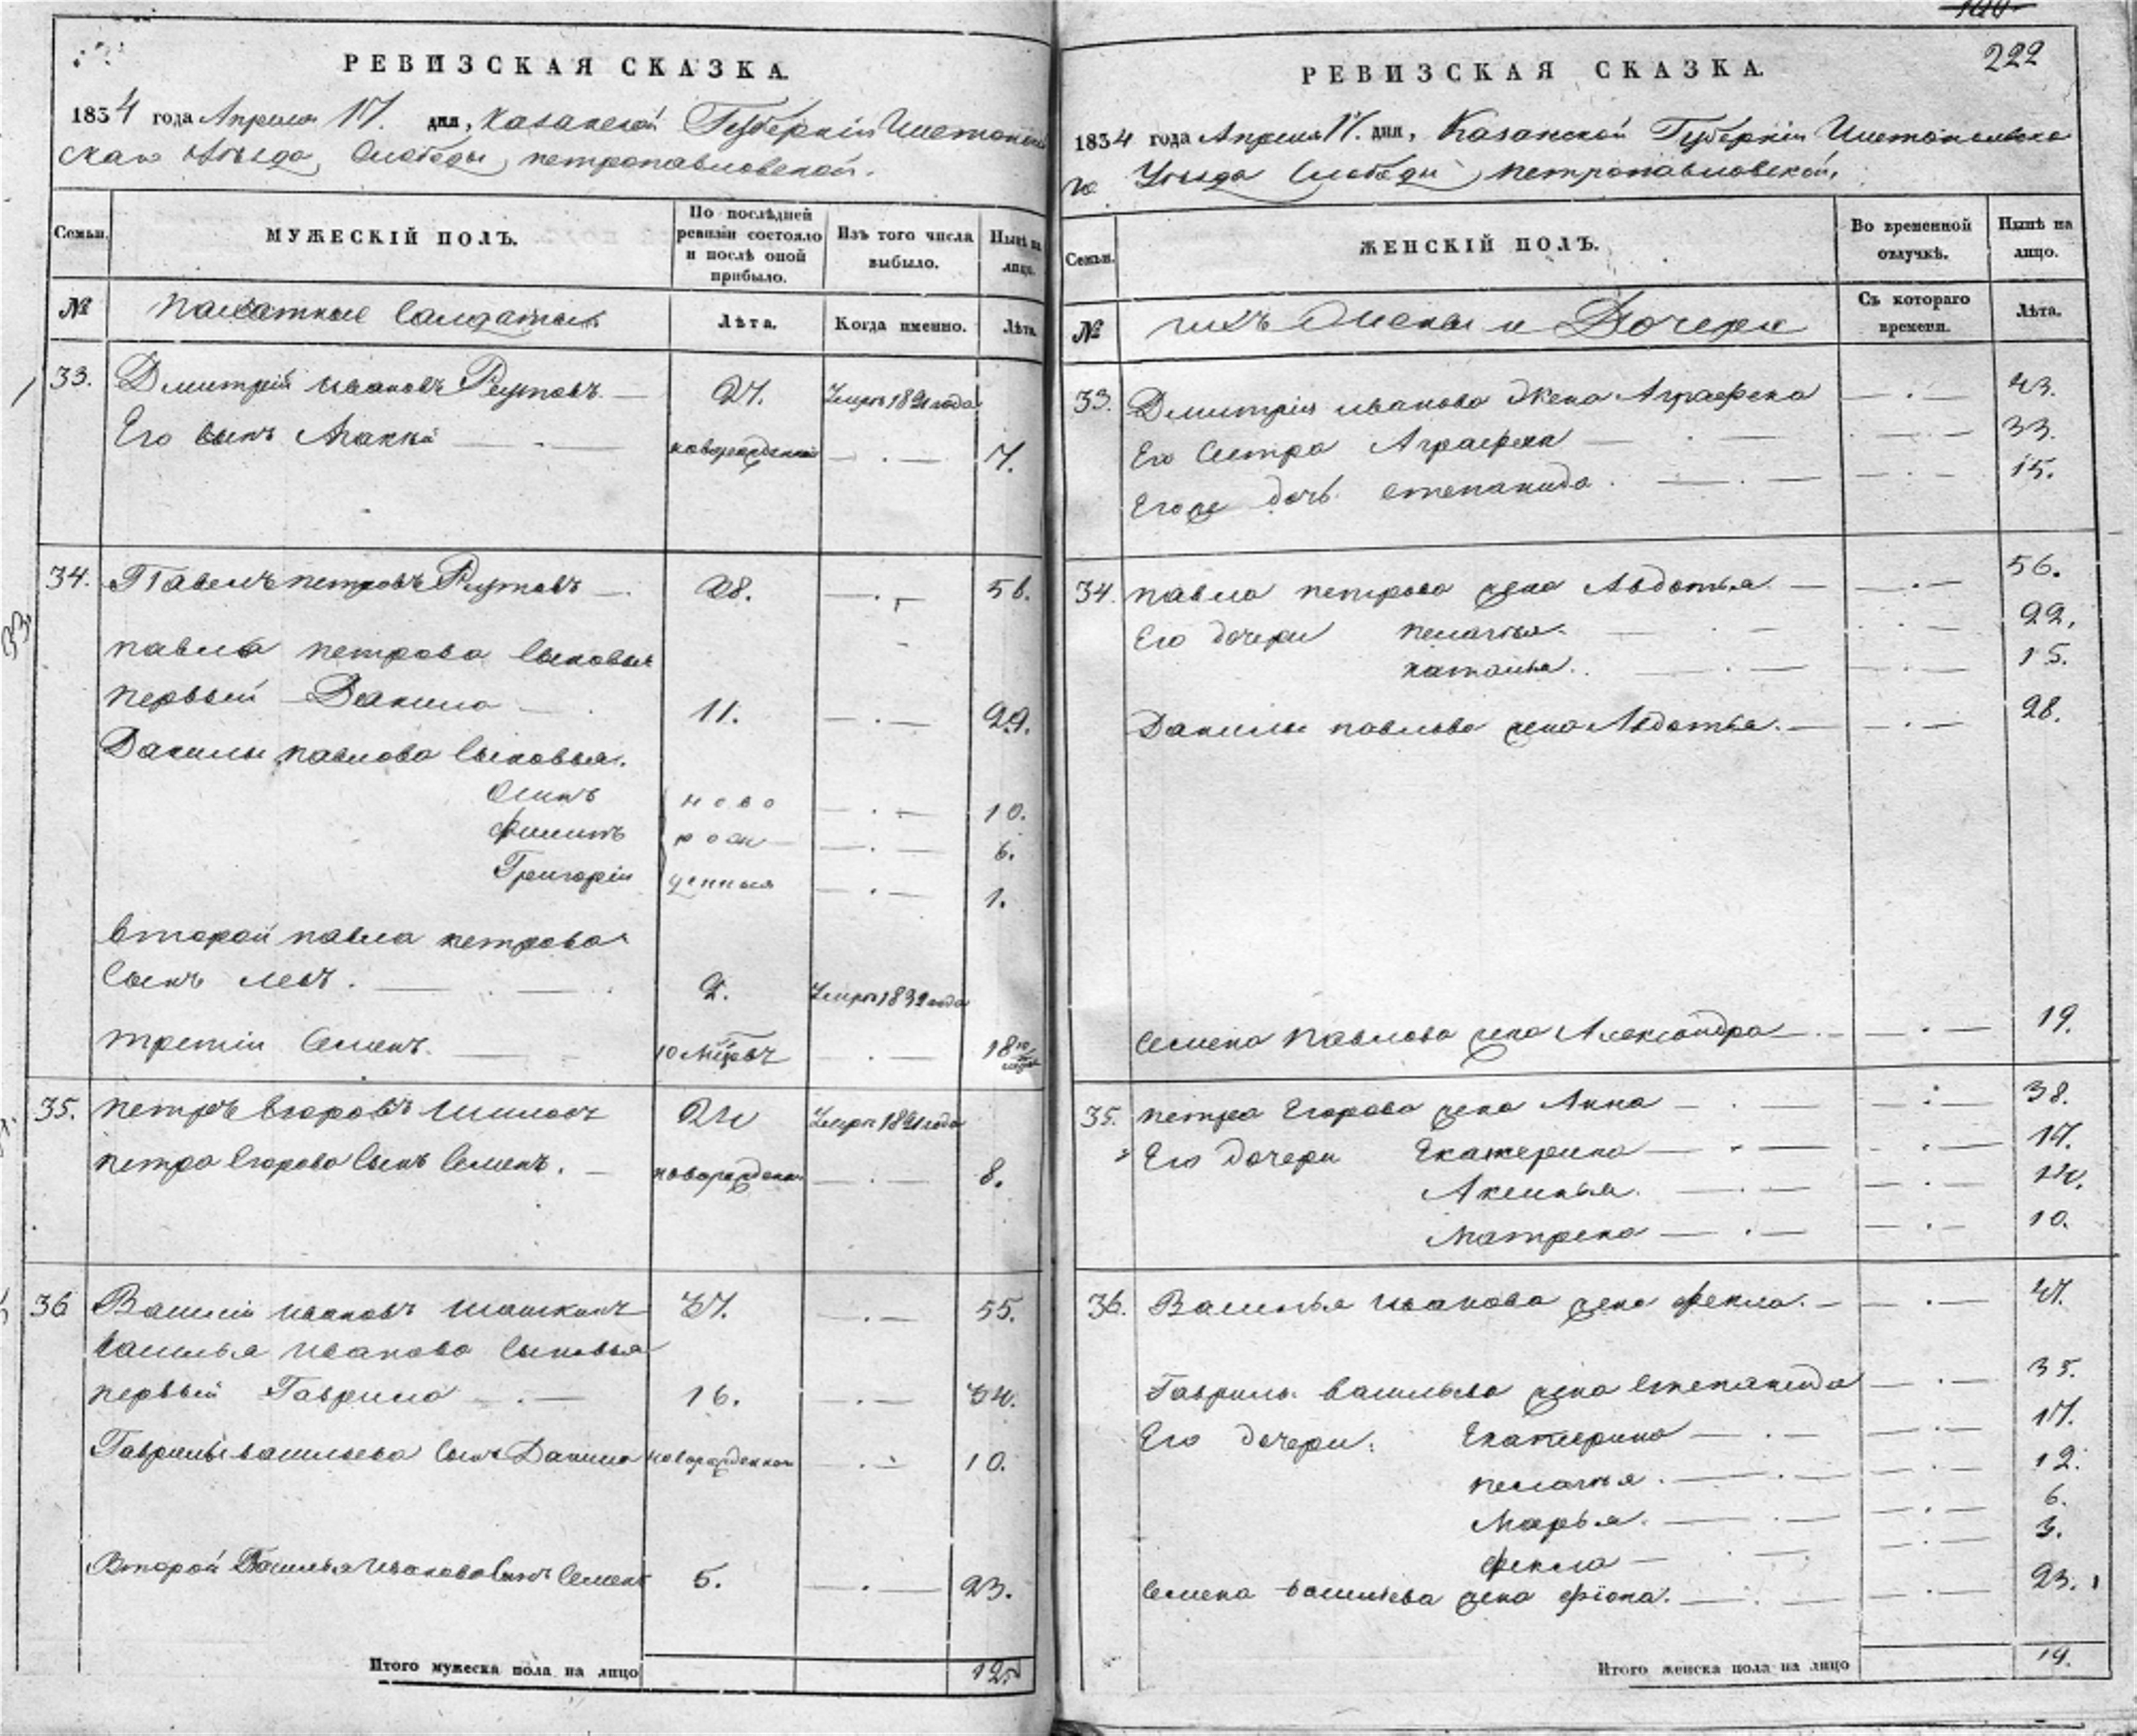 РЕВИЗСКАЯ СКАЗКА.
1834 года Апреля 17. дня, Казанской Губерніи Чистополь
скаго Уѣзда, Слободы петропавловской.
Семьи.
МУЖЕСКІЙ ПОЛЪ.
По послѣдней ревизіи состояло и послѣ оной прибыло.
Изъ того числа выбыло.
Нынѣ на лицо.
№
пахатные Салдаты
Лѣта.
Когда именно.
Лѣта.
33. Дмитрій ивановъ 27. Умеръ 1821 года
Его сынъ новорожденный 7.
34. Павелъ петровъ 38. 56.
павла петрова сыновья
первый Данила 11. 29.
Данилы павлова сыновья.
Осипъ ново 10.
Филипъ рож 6.
Григорій денныя 1.
второй павла петрова
сынъ левъ. 2. Умеръ 1832 года
третій Семенъ. 10 м҃цовъ 18 10/м҃цовъ
35. петръ Егоровъ Шиловъ 24 Умеръ 1821 года
петра Егорова сынъ Семенъ. новорожденный 8.
36 Василій ивановъ Шашкинъ 37. 55.
василья иванова сыновья
первый Гаврила 16. 34.
Гаврилы васильева сынъ Данила новорожденной 10.
Второй Василья иванова сынъ Семенъ 5. 23.
Итого мужеска пола на лицо 12.
222
РЕВИЗСКАЯ СКАЗКА.
1834 года Апреля 17. дня, Казанской Губерніи Чистопольска
го Уѣзда Слободы петропавловской,
Семьи.
ЖЕНСКІЙ ПОЛЪ.
Во временной отлучкѣ.
Нынѣ на лицо.
№
ихъ Жены и Дочери
Съ котораго времени.
Лѣта.
33. Дмитрія иванова Жена Аграфена 43.
Ево Сестра Аграфена 33.
Егоже дочь степанида. 15.
34. павла петрова жена Авдотья. 56.
Его дочери пелагья. 22.
наталья. 15.
Данилы павлова жена Авдотья. 28.
Семена Павлова жена Александра 19.
35. петра Егорова жена Анна 38.
Его дочери Екатерина 17.
Аксинья. 14.
Матрена 10.
36. Василья иванова жена фекла. 47.
Гаврилы васильева жена степанида 35.
Его дочери: Екатерина 17.
пелагья. 12.
Марья. 6.
фекла 3.
Семена васильева жена фіона. 23.
Итого женска пола на лицо 19.